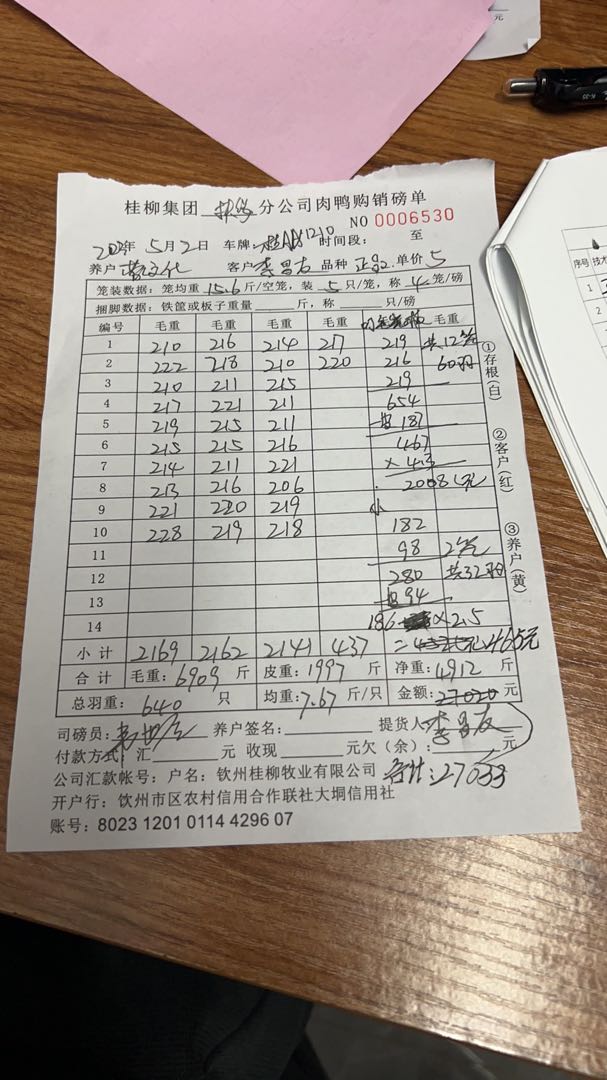 元
K-35
桂柳集团 分公司肉鸭购销磅单
NO 0006530
5月2日 车牌: 1210 时间段: 至
养户 客户 李昌友 品种 正品 单价 5
笼装数据: 笼均重 15.6 斤/空笼, 装 5 只/笼, 称 4 笼/磅
捆脚数据: 铁筐或板子重量 斤, 称 只/磅
编号 毛重 毛重 毛重 毛重 毛重
1 210 216 214 217 219 共12笼
2 222 218 210 220 216 60羽
3 210 211 215 219
4 217 221 211 654
5 219 215 211 187
6 215 215 216 467
7 214 211 221 ×4.3
8 213 216 206 2008.1元
9 221 220 219 小
10 228 219 218 182
11 98 2笼
12 280 共32羽
13 94
14 186 ×2.5
小计 2169 2162 2141 437 = 465元
合计 毛重: 6909 斤 皮重: 1997 斤 净重: 4912 斤
总羽重: 640 只 均重: 7.67 斤/只 金额: 27020 元
司磅员: 养户签名: 提货人 李昌友
付款方式: 汇 元 收现 元欠(余): 元
公司汇款帐号: 户名: 钦州桂柳牧业有限公司 合计: 27033
开户行: 钦州市区农村信用合作联社大垌信用社
账号: 8023 1201 0114 4296 07
①存根(白)
②客户(红)
③养户(黄)
序号 技术
1